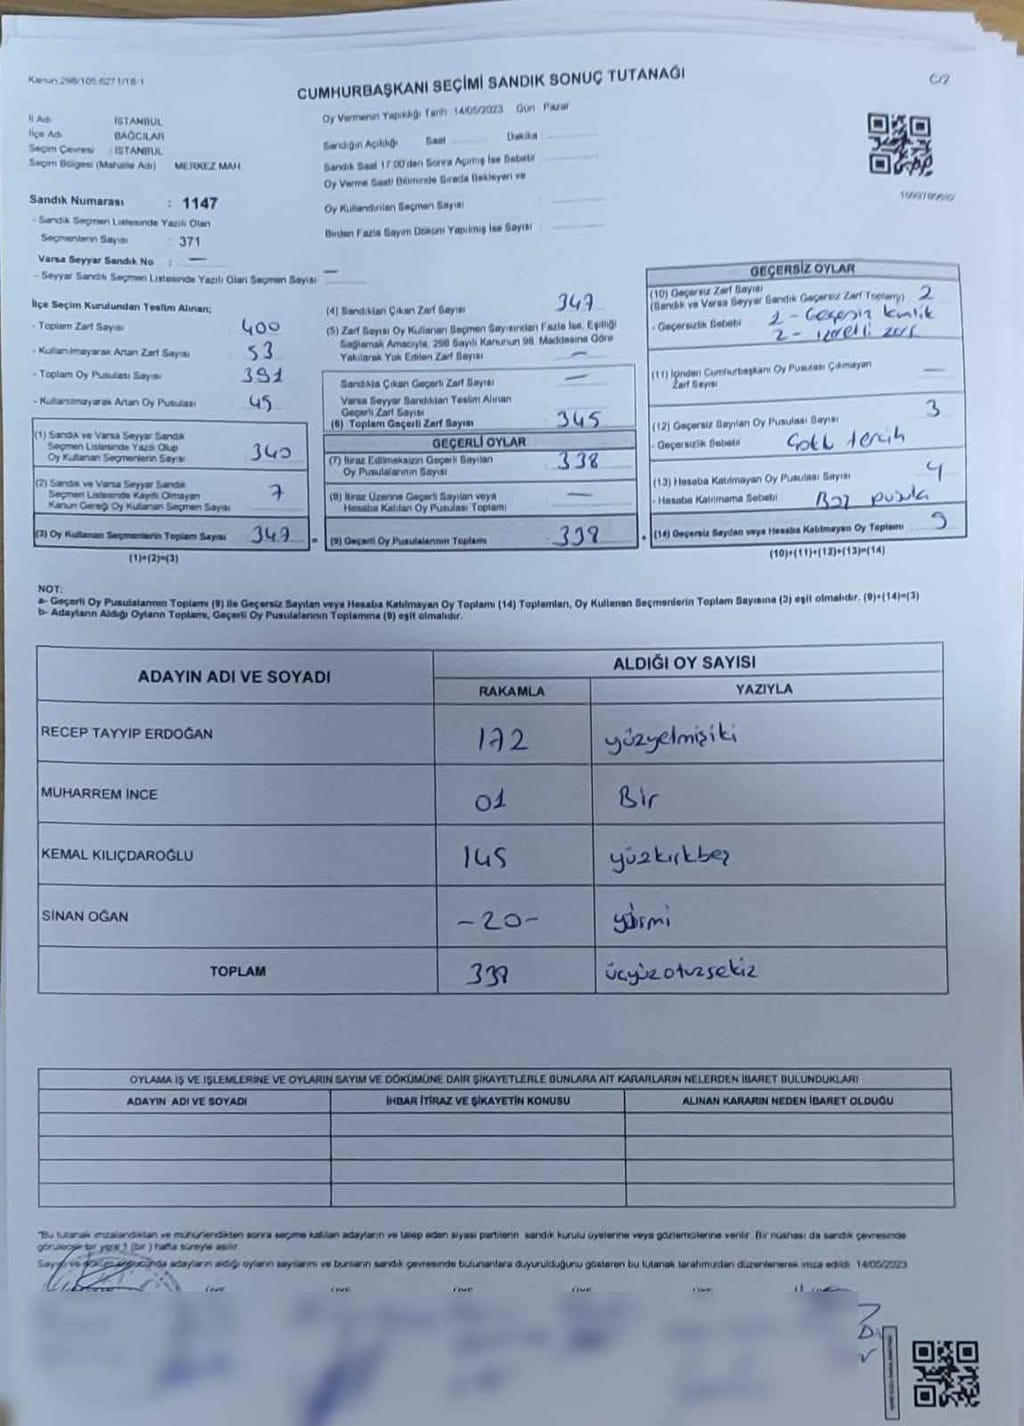 Kanun:298/105.6271/18-1
CUMHURBAŞKANI SEÇİMİ SANDIK SONUÇ TUTANAĞI
C/2
İl Adı İSTANBUL
İlçe Adı BAĞCILAR
Seçim Çevresi : İSTANBUL
Seçim Bölgesi (Mahalle Adı) MERKEZ MAH
Sandık Numarası : 1147
- Sandık Seçmen Listesinde Yazılı Olan
Seçmenlerin Sayısı : 371
Varsa Seyyar Sandık No : —
- Seyyar Sandık Seçmen Listesinde Yazılı Olan Seçmen Sayısı —
Oy Vermenin Yapıldığı Tarih :14/05/2023 Gün Pazar
Sandığın Açıldığı Saat Dakika
Sandık Saat 17.00'den Sonra Açılmış İse Sebebi
Oy Verme Saati Bitiminde Sırada Bekleyen ve
Oy Kullandırılan Seçmen Sayısı
Birden Fazla Sayım Döküm Yapılmış İse Sayısı
İlçe Seçim Kurulundan Teslim Alınan;
- Toplam Zarf Sayısı 400
- Kullanılmayarak Artan Zarf Sayısı 53
- Toplam Oy Pusulası Sayısı 391
- Kullanılmayarak Artan Oy Pusulası 45
(1) Sandık ve Varsa Seyyar Sandık
Seçmen Listesinde Yazılı Olup
Oy Kullanan Seçmenlerin Sayısı 340
(2) Sandık ve Varsa Seyyar Sandık
Seçmen Listesinde Kayıtlı Olmayan
Kanun Gereği Oy Kullanan Seçmen Sayısı 7
(3) Oy Kullanan Seçmenlerin Toplam Sayısı 347
(1)+(2)=(3)
(4) Sandıktan Çıkan Zarf Sayısı 347
(5) Zarf Sayısı Oy Kullanan Seçmen Sayısından Fazla İse, Eşitliği
Sağlamak Amacıyla, 298 Sayılı Kanunun 98. Maddesine Göre
Yakılarak Yok Edilen Zarf Sayısı —
Sandıkta Çıkan Geçerli Zarf Sayısı —
Varsa Seyyar Sandıktan Teslim Alınan
Geçerli Zarf Sayısı
(6) Toplam Geçerli Zarf Sayısı 345
GEÇERLİ OYLAR
(7) İtiraz Edilmeksizin Geçerli Sayılan
Oy Pusulalarının Sayısı 338
(8) İtiraz Üzerine Geçerli Sayılan veya
Hesaba Katılan Oy Pusulası Toplamı —
= (9) Geçerli Oy Pusulalarının Toplamı 338
GEÇERSİZ OYLAR
(10) Geçersiz Zarf Sayısı
(Sandık ve Varsa Seyyar Sandık Geçersiz Zarf Toplamı) 2
- Geçersizlik Sebebi 1 - Geçersiz kimlik
2 - işaretli zarf
(11) İçinden Cumhurbaşkanı Oy Pusulası Çıkmayan
Zarf Sayısı —
(12) Geçersiz Sayılan Oy Pusulası Sayısı 3
- Geçersizlik Sebebi Çoklu tercih
(13) Hesaba Katılmayan Oy Pusulası Sayısı 4
- Hesaba Katılmama Sebebi Boş pusula
+ (14) Geçersiz Sayılan veya Hesaba Katılmayan Oy Toplamı 9
(10)+(11)+(12)+(13)=(14)
NOT:
a- Geçerli Oy Pusulalarının Toplamı (9) ile Geçersiz Sayılan veya Hesaba Katılmayan Oy Toplamı (14) Toplamları, Oy Kullanan Seçmenlerin Toplam Sayısına (3) eşit olmalıdır. (9)+(14)=(3)
b- Adayların Aldığı Oyların Toplamı, Geçerli Oy Pusulalarının Toplamına (9) eşit olmalıdır.
ADAYIN ADI VE SOYADI ALDIĞI OY SAYISI
RAKAMLA YAZIYLA
RECEP TAYYİP ERDOĞAN 172 yüzyetmişiki
MUHARREM İNCE 01 Bir
KEMAL KILIÇDAROĞLU 145 yüzkırkbeş
SİNAN OĞAN -20- yirmi
TOPLAM 338 üçyüzotuzsekiz
OYLAMA İŞ VE İŞLEMLERİNE VE OYLARIN SAYIM VE DÖKÜMÜNE DAİR ŞİKAYETLERLE BUNLARA AİT KARARLARIN NELERDEN İBARET BULUNDUKLARI
ADAYIN ADI VE SOYADI İHBAR İTİRAZ VE ŞİKAYETİN KONUSU ALINAN KARARIN NEDEN İBARET OLDUĞU
"Bu tutanak imzalandıktan ve mühürlendikten sonra seçime katılan adayların ve talep eden siyasi partilerin sandık kurulu üyelerine veya gözlemcilerine verilir. Bir nüshası da sandık çevresinde
görülecek bir yere 1 (bir) hafta süreyle asılır.
Sayım ve döküm sonucunda adayların aldığı oyların sayılarını ve bunların sandık çevresinde bulunanlara duyurulduğunu gösteren bu tutanak tarafımızdan düzenlenerek imza edildi. 14/05/2023